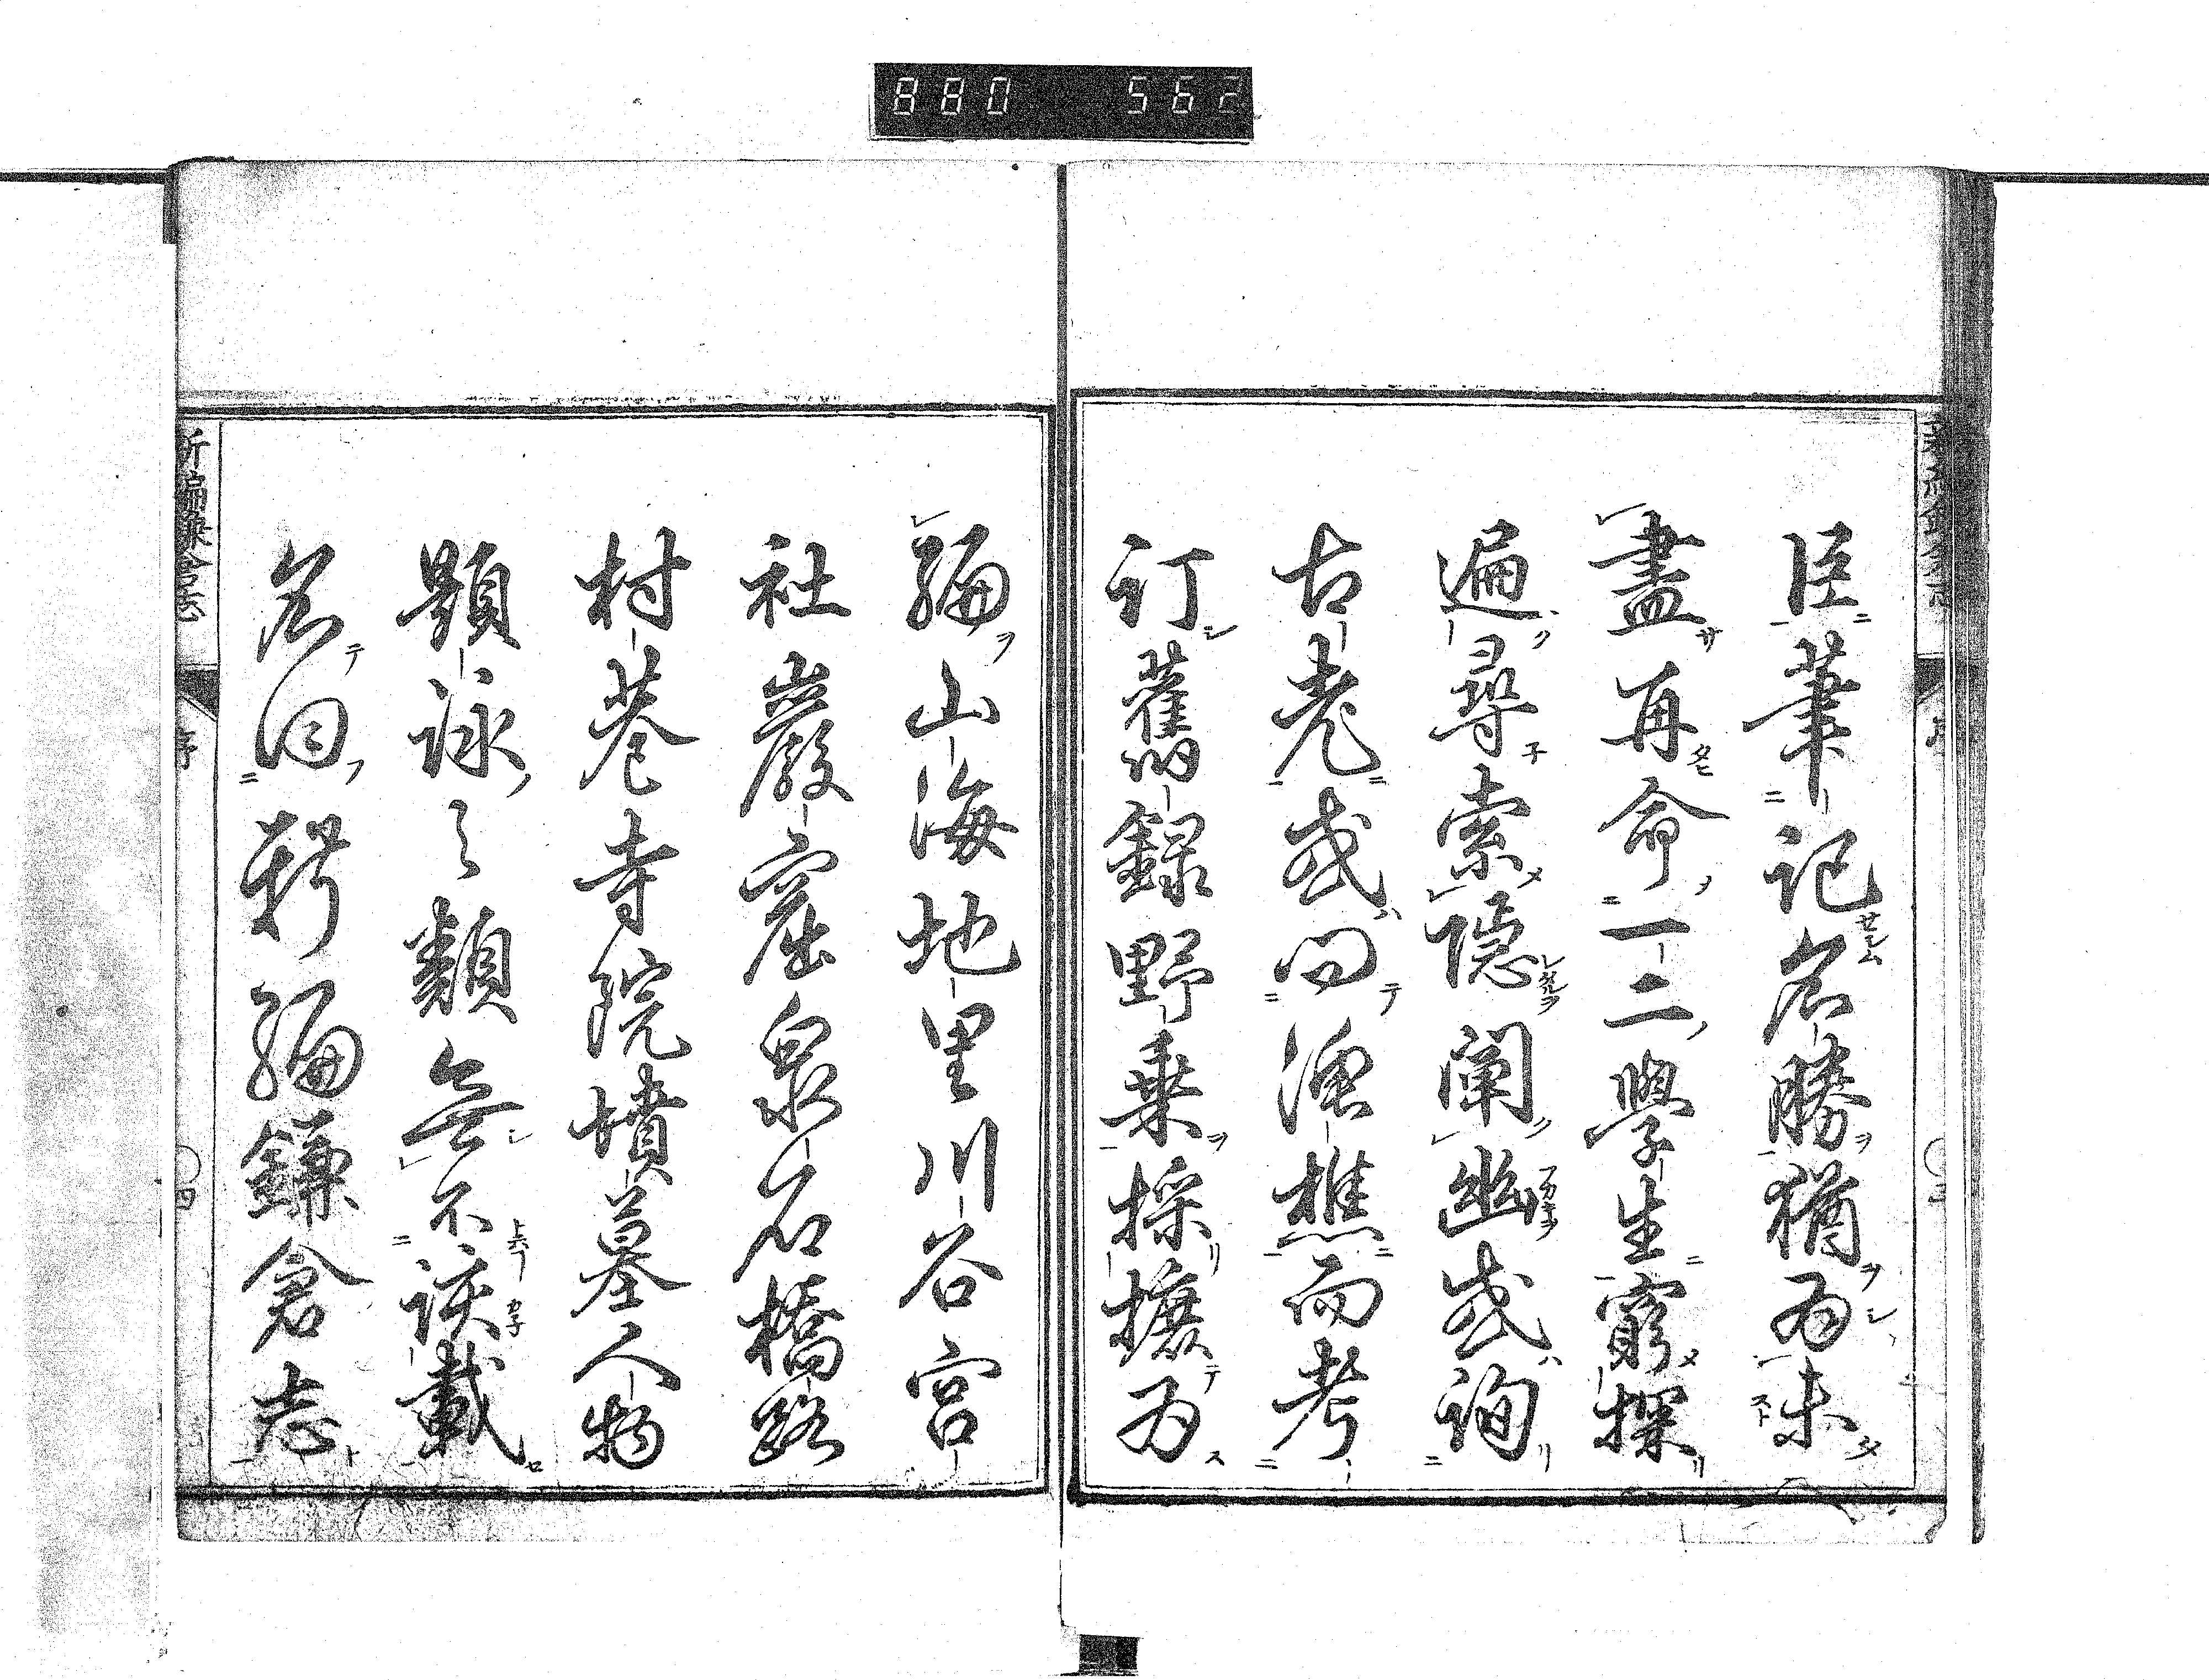 880 562
臣筆記名勝猶為未
盡再命一二學生窮探
遍尋索隱闡幽或詢
古老或問漁樵而考
訂舊録野乗採摭為
編山海地里川谷宮
社巖窟泉石橋路
村巷寺院墳墓人物
題詠之類無不該載
名曰新編鎌倉志
新編鎌倉志
序
四